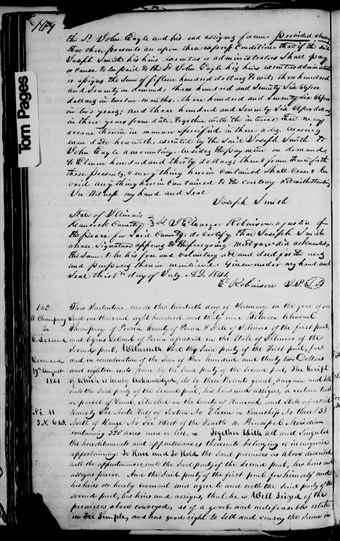 184
Torn Pages
the sd John Cagle and his and assigns forever Provided always
that these presents are upon this express Conditions that if the said
Joseph Smith his heirs executors or administrators Shall pay
or cause to be paid to the sd John Cagle his heirs executors administrators
or assigns the Sum of fifteen hundred dollars to wit, three hundred
and Seventy on demand, three hundred and Seventy Six 66/100
dollars in twelve months, three hundred and Seventy Six 66/100
in two years, and three hundred and Seventy Six 66/100 dollars
in three years from date, together with the interest that may
accrue thereon in manner Specified in three notes bearing
even date herewith executed by the said Joseph Smith to
John Cagle amounting, besides the payment on demand,
to Eleven hundred and thirty dollars; then & from thenceforth
these presents, & every thing herein contained Shall Cease & be
void any thing herein Contained to the Contrary notwithstanding
In Witness my hand and Seal
Joseph Smith
State of Illinois
Hancock County I Ebenezer Robinson a justice of
the peace for said County do certify that Joseph Smith
whose Signature appears to the foregoing Mortgage did acknowledge
the Same to be his free and voluntary act and deed for the uses
and purposes therein mentioned. Given under my hand and
Seal this day of July A.D. 1841.
E Robinson J.P.
This Indenture, made this twentieth day of in the year of our
Lord one thousand eight hundred and thirty nine Between
Champney of Peoria County of Peoria & State of Illinois of the first part
and of the State of Illinois of the
Second part, Witnesseth that the Said party of the first part, for
and in consideration of the Sum of Four hundred and thirty two Dollars
and eighteen cents to me by the Said party of the Second part, the Receipt
of which is hereby Acknowledged, do by these Presents grant, bargain and Sell
unto the Said party of the Second part, his heirs and assigns, a certain tract
or parcel of Land, Situated in the County of Hancock and State aforesaid
Namely The North Half of Section No Eleven in Township No three (3)
North of Range No Six West of the fourth Principal Meridian
containing 320 acres more or less — Together with all and Singular
the hereditaments and appurtenances thereunto belonging or in anywise
appertaining: To Have and To Hold the Said premises as above described
with the appurtenances, unto the Said party of the Second part, his heirs and
assigns forever. And the Said party of the first part for himself and
his heirs do hereby covenant and agree to and with the Said party of the
Second part, his heirs and assigns, that he is Well Seized of the
premises above conveyed, as of a good and indefeasible estate
in Fee Simple, and has good right to Sell and convey the Same in